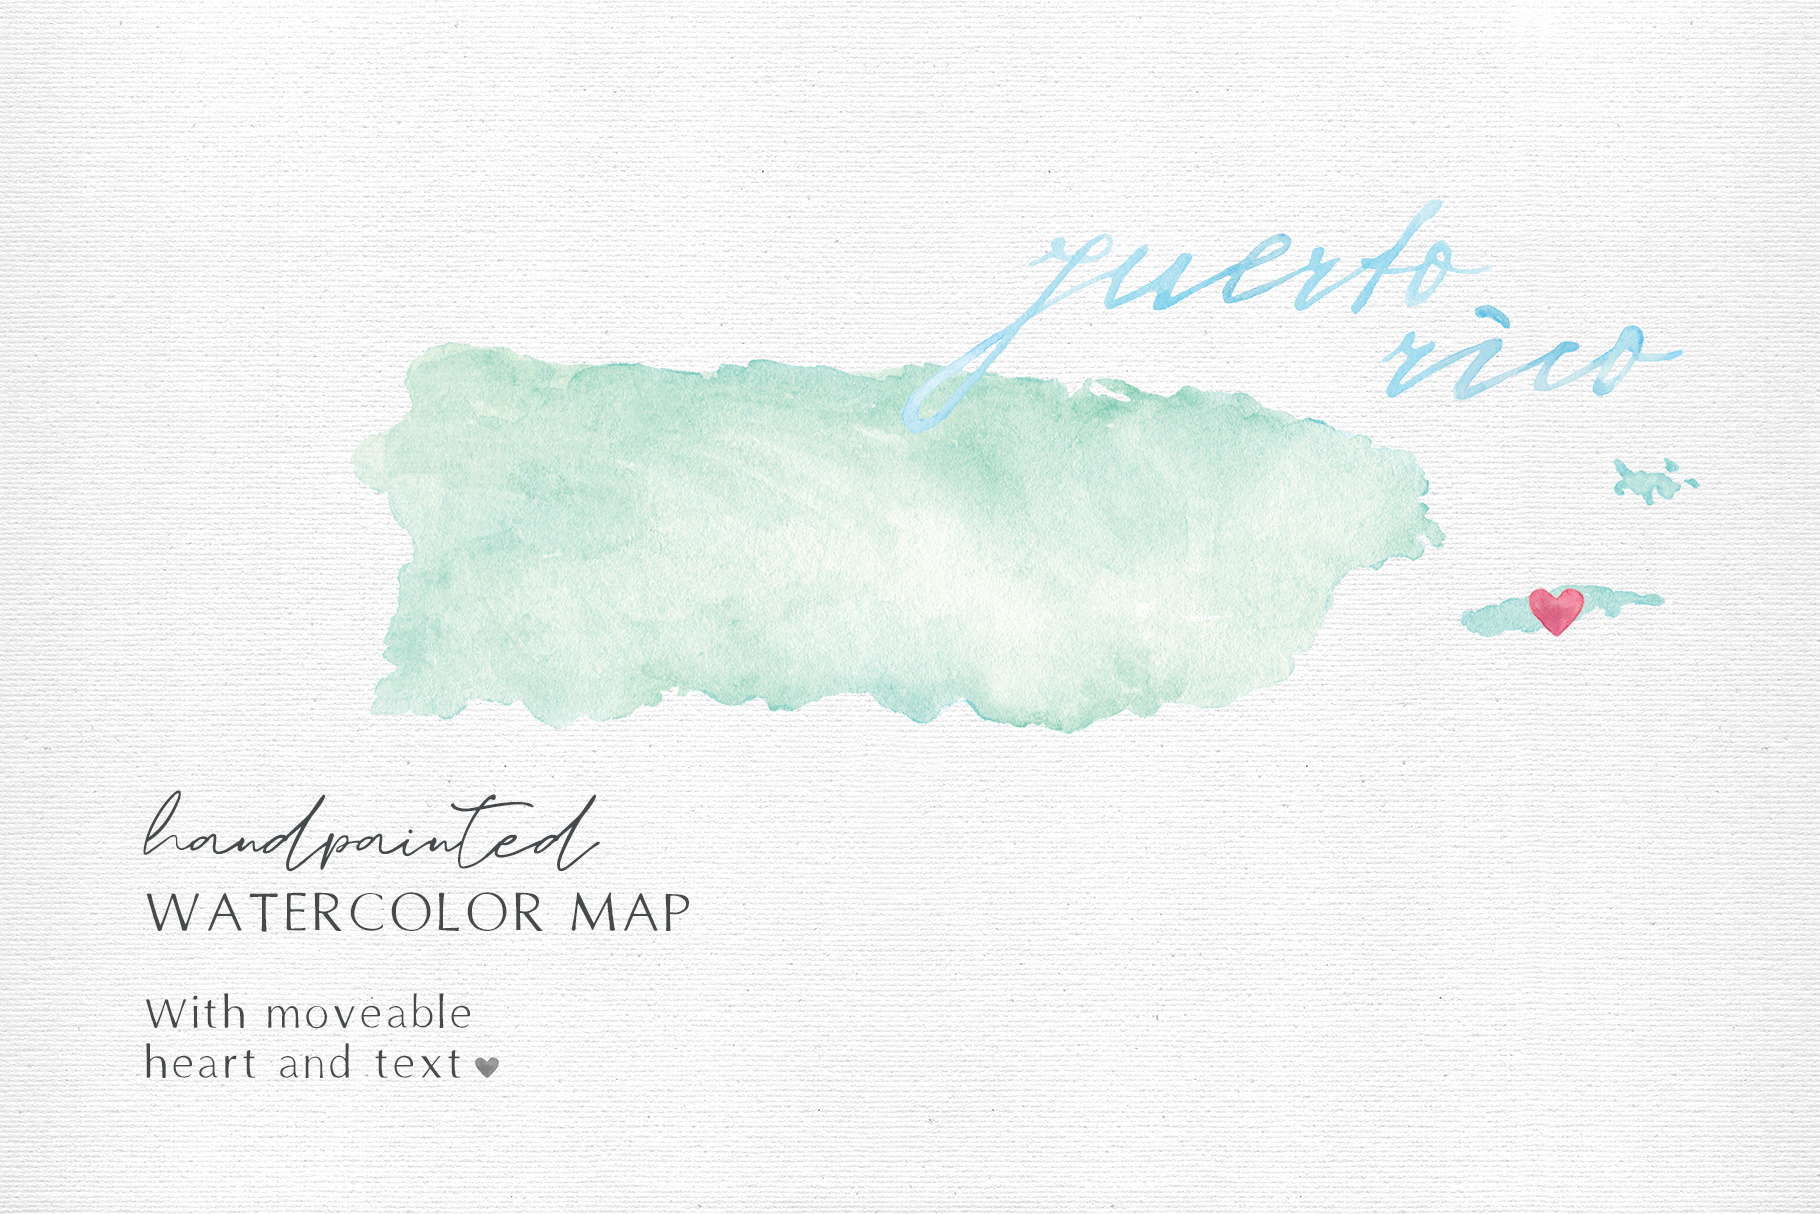 puerto
rico
handpainted
WATERCOLOR MAP
With moveable
heart and text